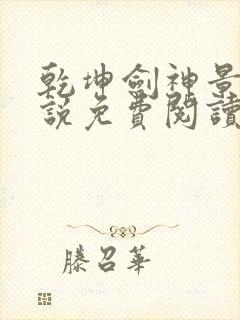 乾坤劍神景
說免費閱讀
滕召華